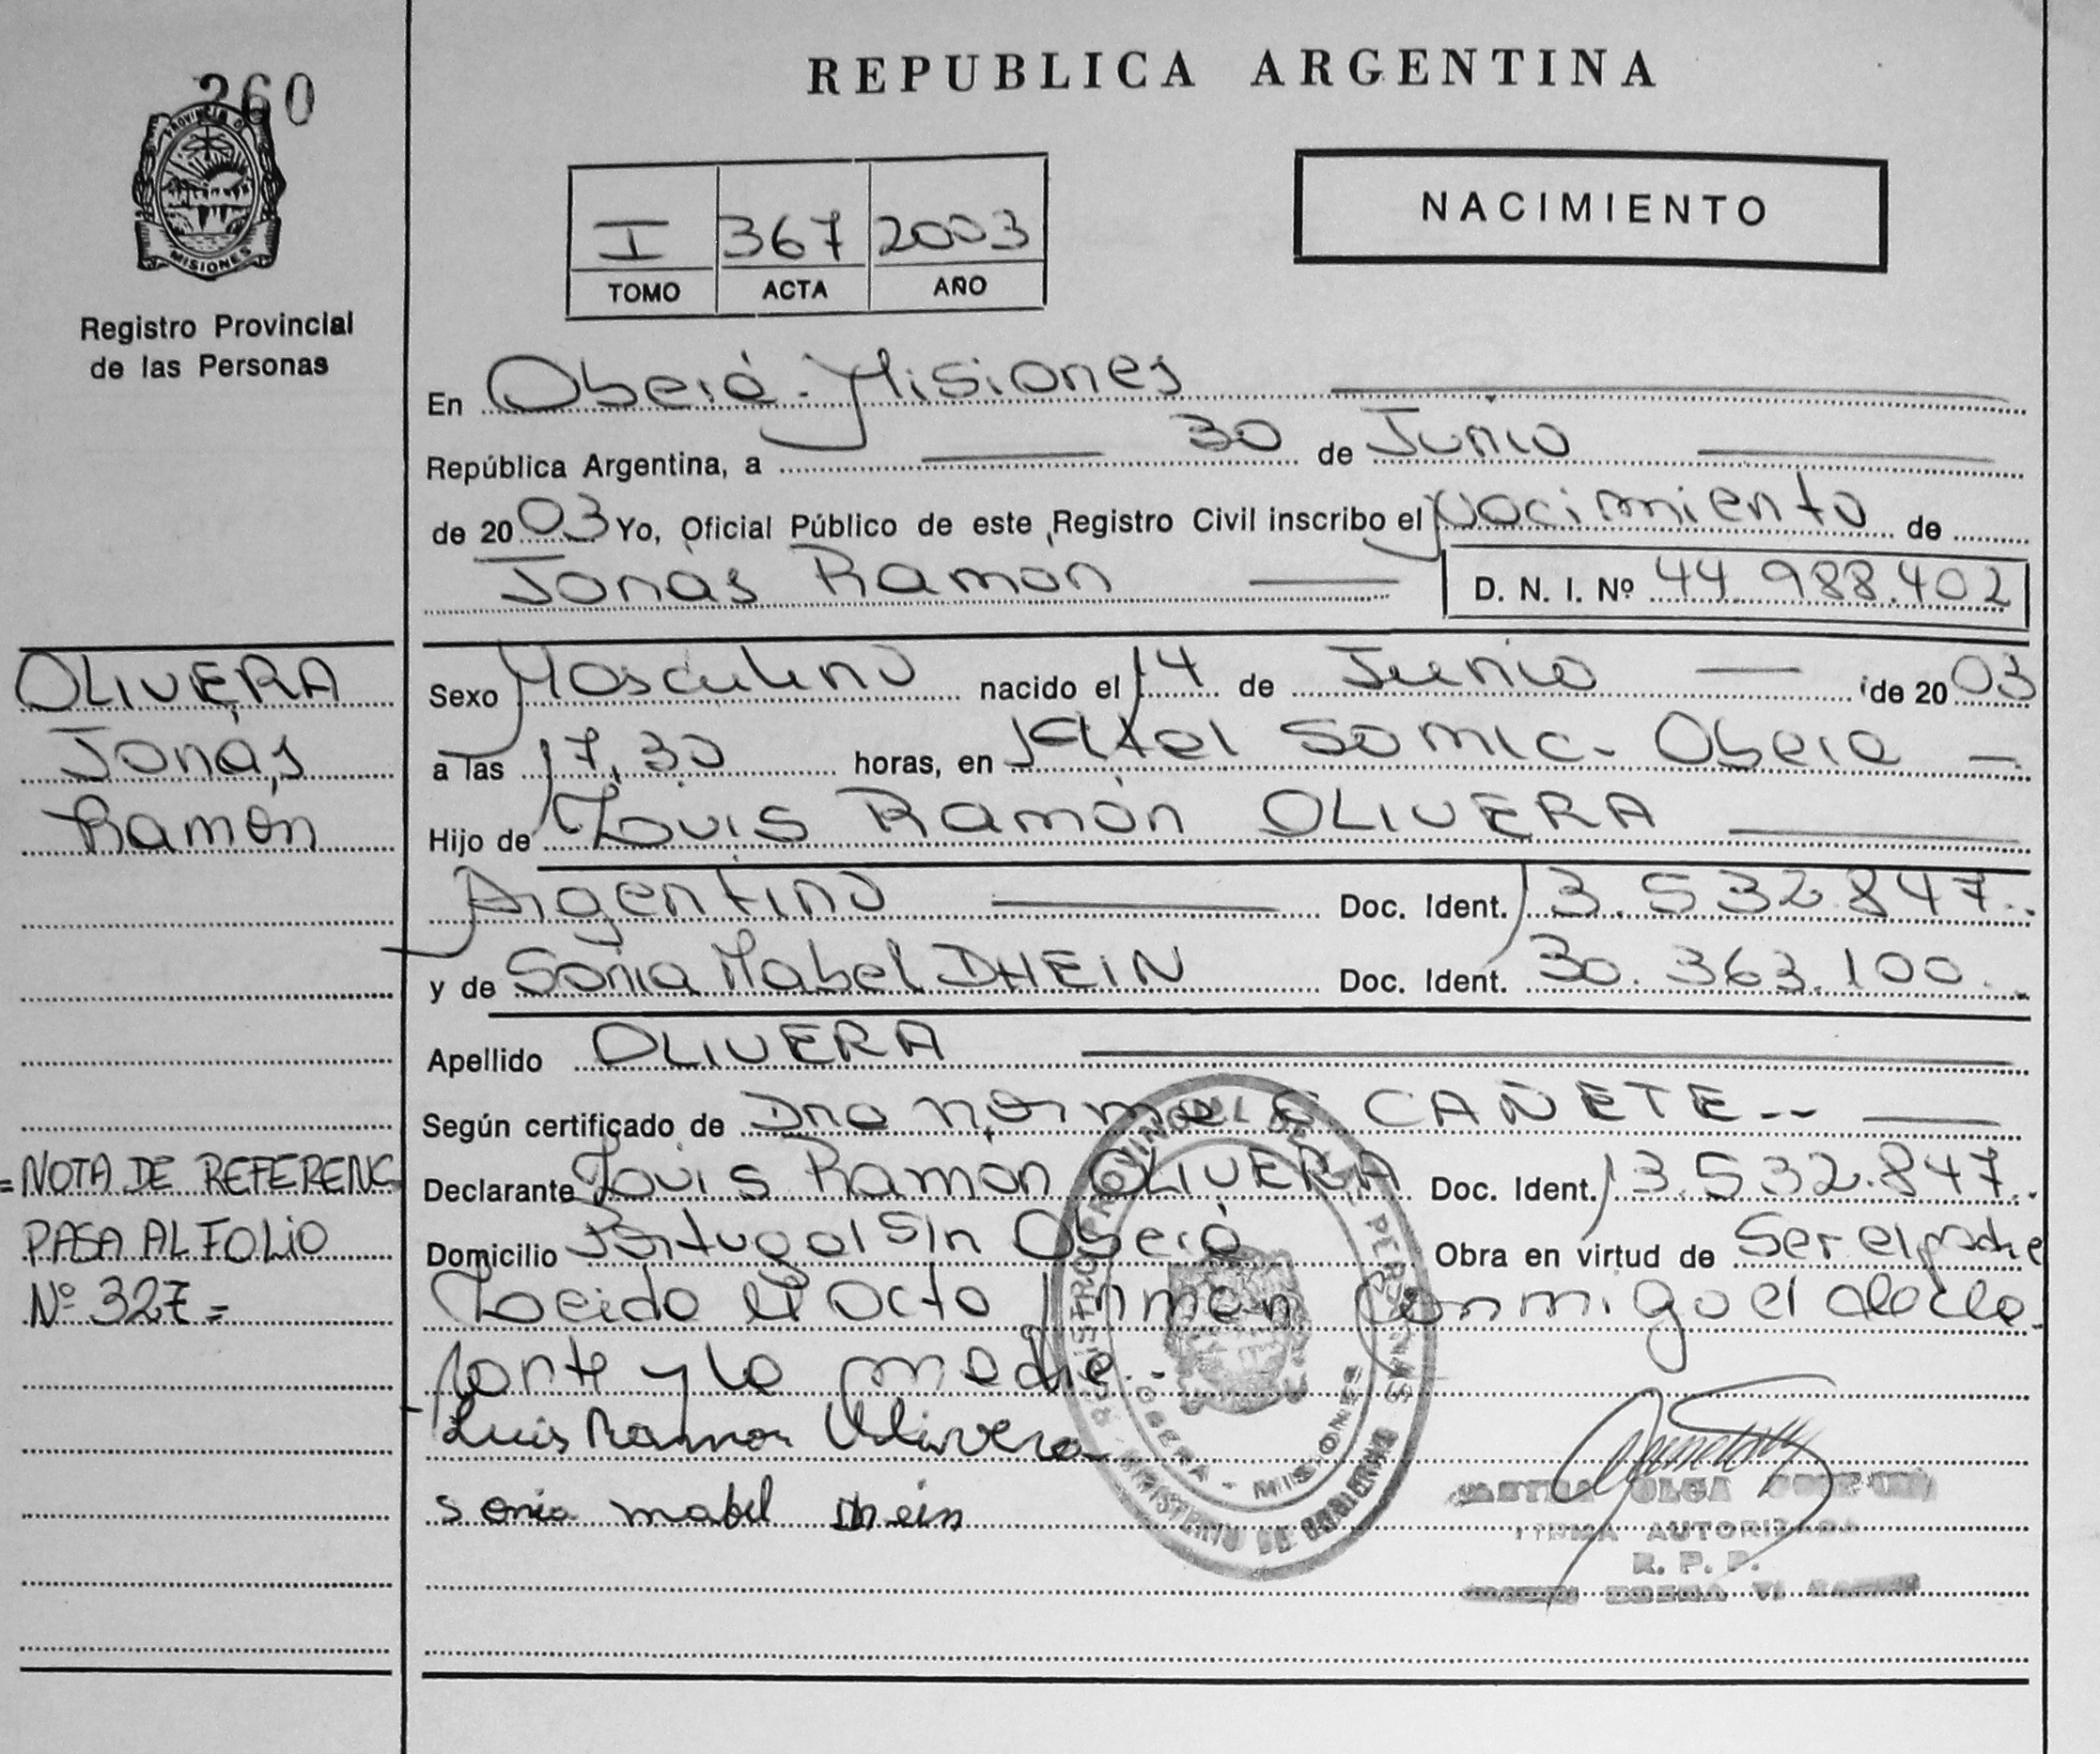 260
PROVINCIA DE
MISIONES
Registro Provincial
de las Personas
REPUBLICA ARGENTINA
NACIMIENTO
I 367 2003
TOMO ACTA AÑO
En Oberá - Misiones
República Argentina, a 30 de Junio
de 2003 Yo, Oficial Público de este Registro Civil inscribo el Nacimiento de
Jonas Ramon D. N. I. Nº 44.988.402
OLIVERA
Jonas
Ramón
Sexo Masculino nacido el 14 de Junio de 2003
a las 17,30 horas, en Samic - Obera
Hijo de Louis Ramón OLIVERA
Argentino Doc. Ident. 13.532.847.
y de Sonia Mabel DHEIN Doc. Ident. 30.363.100.
Apellido OLIVERA
Según certificado de Dra Norma CAÑETE --
Declarante Louis Ramon OLIVERA Doc. Ident. 13.532.847.
Domicilio Portugal S/n Oberá Obra en virtud de Ser el padre
Leida el Acta firman conmigo el decla
rante y la madre.-
Luis Ramon Olivera
Sonia mabel Dhein
= NOTA DE REFERENC
PASA AL FOLIO
Nº 327 =
REGISTRO PROVINCIAL DE LAS PERSONAS
MINISTERIO DE GOBIERNO
OBERA - MISIONES
OLGA
FIRMA AUTORIZADA
R. P. P.